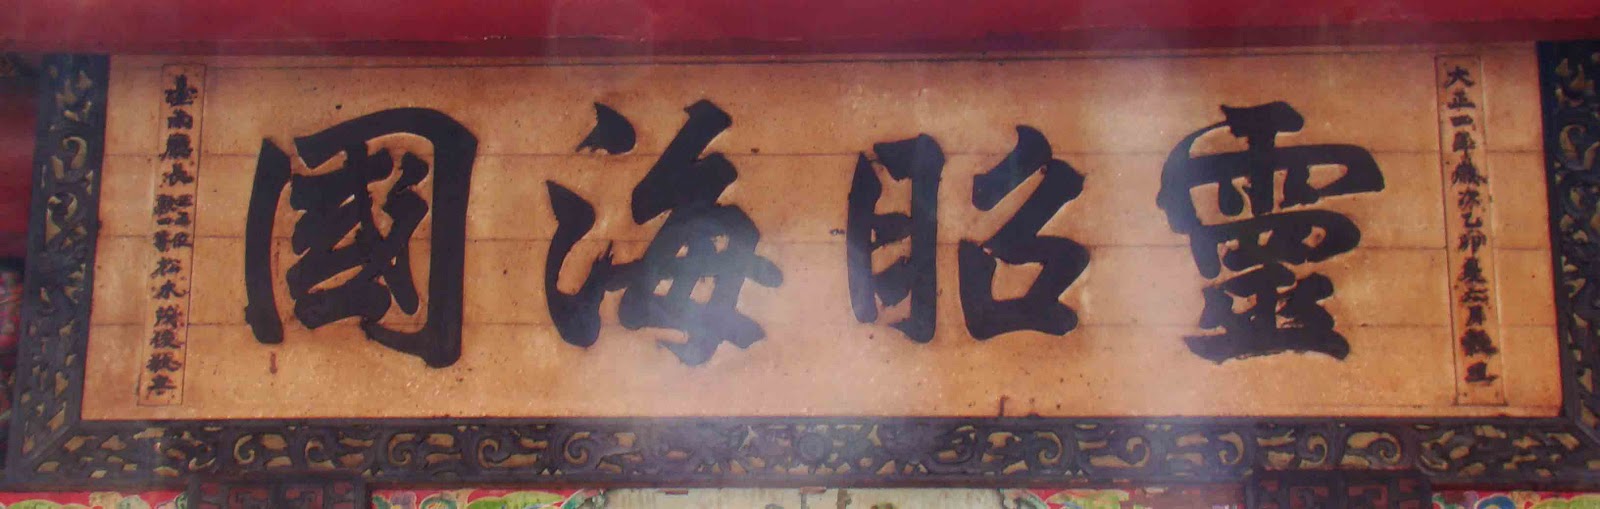 大正四年歲次乙卯夏六月穀旦
靈昭海國
臺南廳長正五位勳四等松木茂俊敬